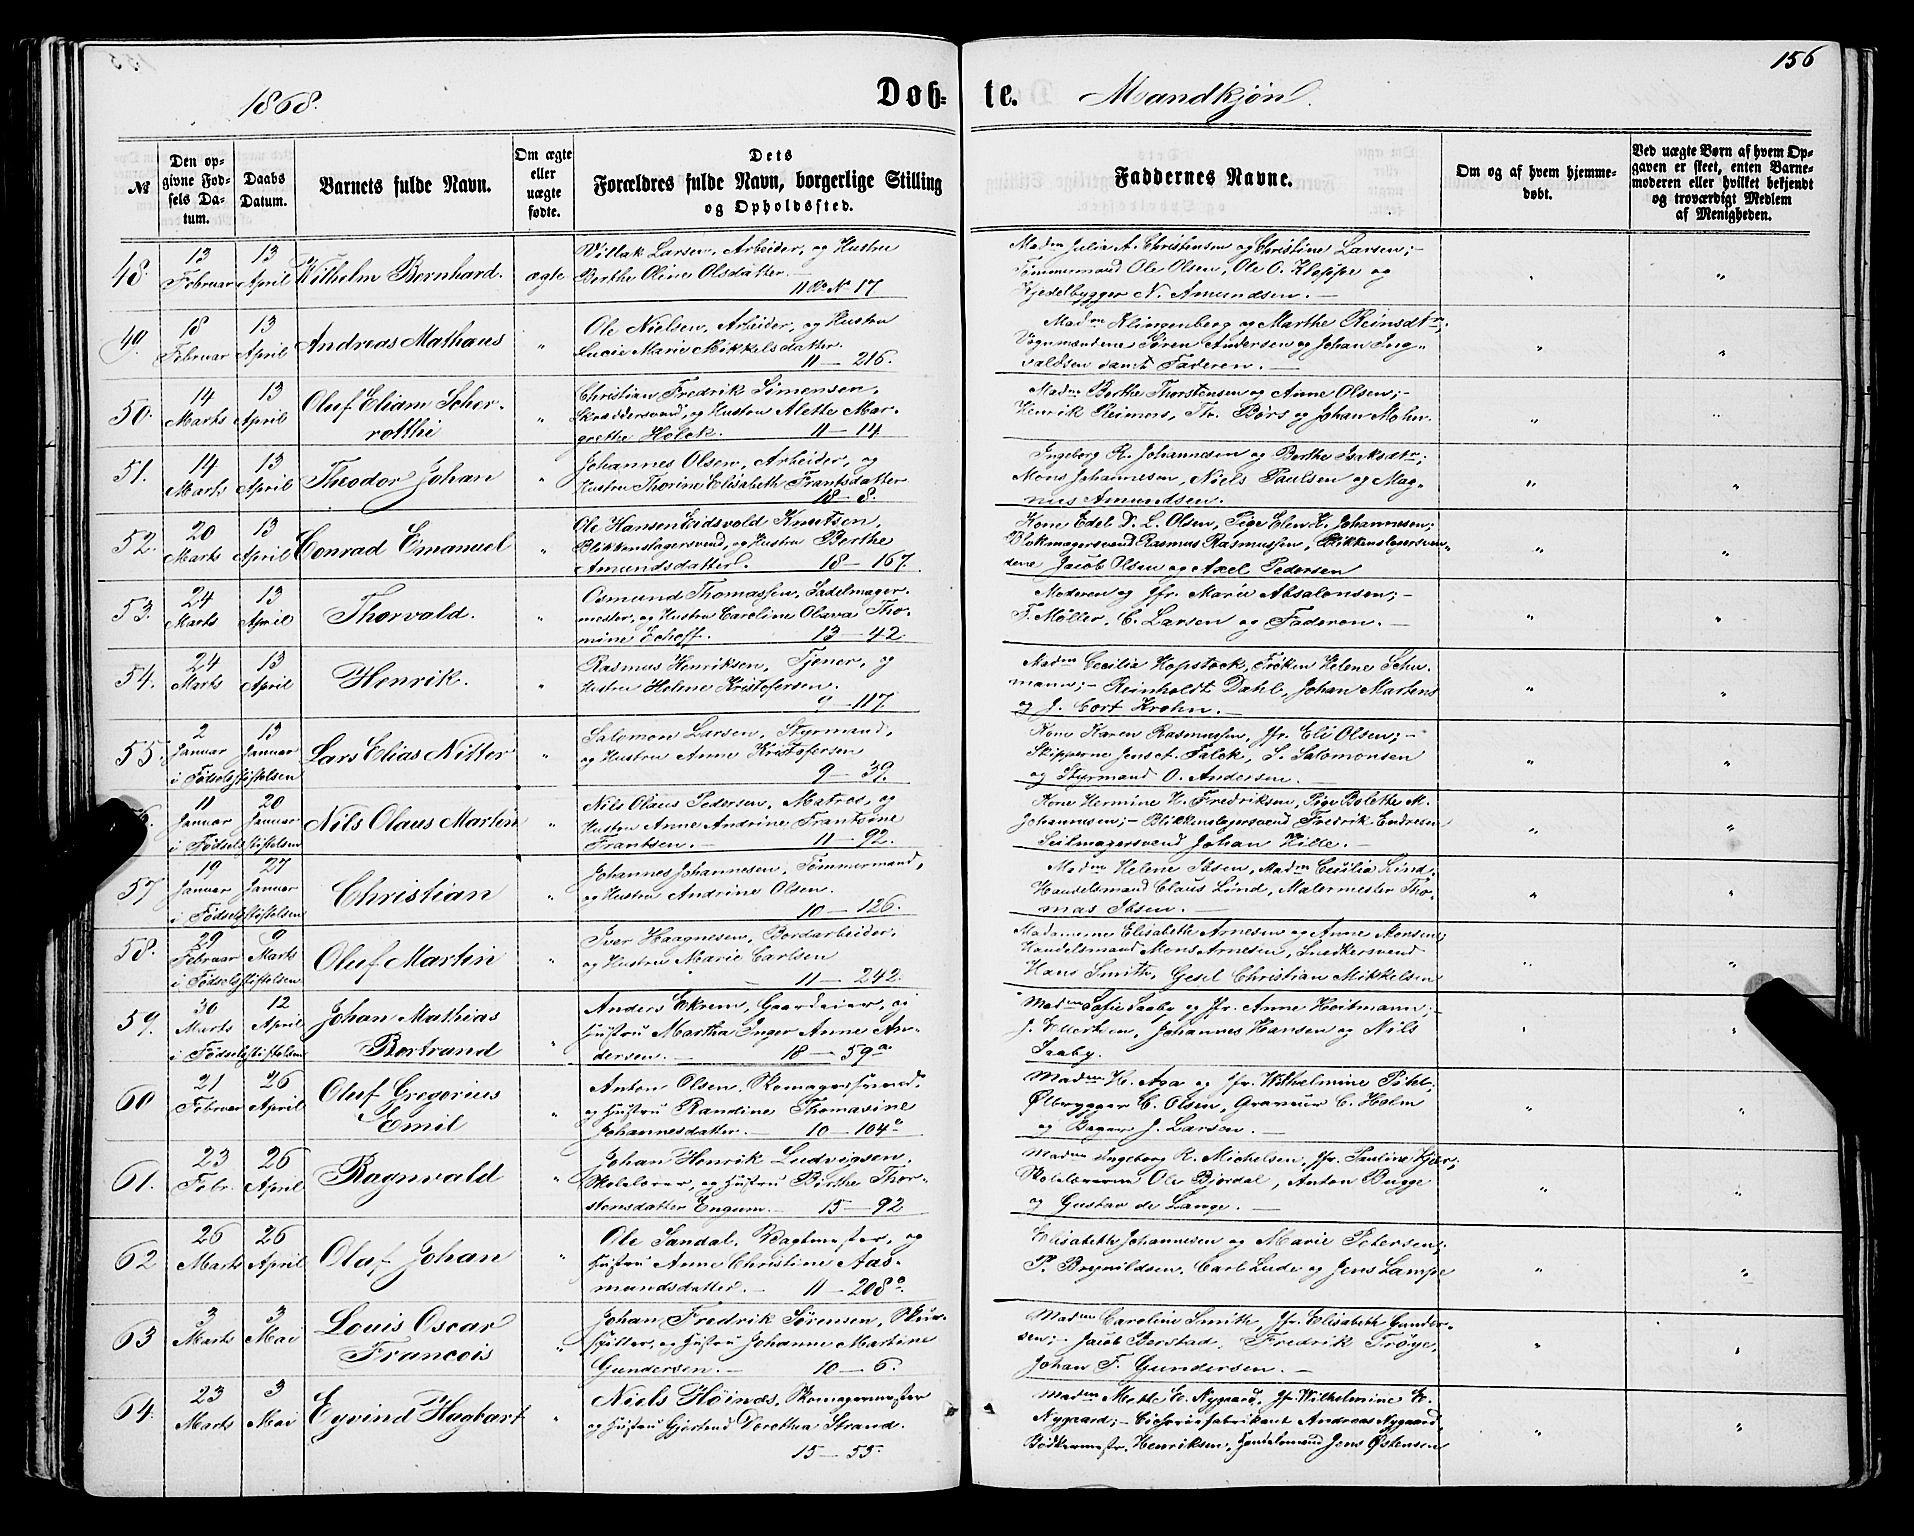 156
1868.
Døb-
te.
Mandkjøn.
№
Den op-
givne Fød-
sels Da-
tum.
Daabs
Datum.
Barnets fulde Navn.
Om ægte
eller
uægte
fødte.
Dets
Forældres fulde Navn, borgerlige Stilling
og Opholdssted.
Faddernes Navne.
Om og af hvem hjemme-
døbt.
Ved uægte Børn af hvem Op-
gaven er skeet, enten Barne-
moderen eller hvilket bekjendt
og troværdigt Medlem
af Menigheden.
48.
13
Februar
13
April
Wilhelm Bernhard.
ægte
Villak Larsen, Arbeider, og Hustru
Berthe Oline Olsdatter.
11 Rd No 17
Madmn Julia A. Christensen og Christine Larsen;-
Tømmermænd Ole Olsen, Ole O. Kleppe og
Kjedelbygger N. Amundsen. -
49.
18
Februar
13
April
Andreas Mathæus
"
Ole Nielsen, Arbeider, og Hustru
Lucie Marie Mikkelsdatter.
11 - 216.
Madmn Klingenberg og Marthe Reinsdtr;
Vognmændene Søren Andersen og Johan Ing-
valdsen samt Faderen. -
50.
14
Marts
13
April
Oluf Eliam Scher-
rotthi
"
Christian Fredrik Simensen,
Skræddersvend, og Hustru Alette Mar-
grethe Holck. 11 - 14
Madmn Berthe Thorstensen og Anne Olsen;-
Henrik Reimers, Th. Børs og Johan Mohn.
51.
14
Marts
13
April
Theodor Johan
"
Johannes Olsen, Arbeider, og
Hustru Thorine Elisabeth Frantsdatter
18 - 8.
Ingeborg R. Johannesen og Berthe Isaksdtr;
Mons Johannesen, Niels Paulsen og Mag-
nus Amundsen.
52.
20
Marts
13
April
Conrad Emanuel
"
Ole Hansen Eidsvold Knutsen,
Blikkenslagersvend, og Hustru Berthe
Amundsdatter. 18 - 167.
Kone Edel D. L. Olsen, Pige Elen K. Johannesen;
Blokmagersvend Rasmus Rasmussen, Blikkenslagersven-
dene Jacob Olsen og Axel Pedersen
53.
24
Marts
13
April
Thorvald.
"
Osmund Thomassen, Sadelmager-
mester, og Hustru Caroline Olava Tho-
mine Echoff. 13 - 42
Moderen og Jfr. Marie Absalonsen;-
F. Møller, C. Larsen og Faderen. -
54.
24
Marts
13
April
Henrik.
"
Rasmus Henriksen, Tjener, og
Hustru Helene Kristofersen.
9 - 117.
Madmn Cecilia Hopstock, Frøken Helene Schu-
mann;- Reinholdt Dahl, Johan Martens
og J. Cort Krohn. -
55.
2
Januar
13
Januar
i Fødselsstiftelsen
Lars Elias Nitter
"
Salomon Larsen, Styrmand,
og Hustru Anne Kristofersen
9 - 39.
Kone Karen Rasmussen, Jfr. Eli Olsen;-
Skipperne Jens A. Falck, S. Salomonsen
og Styrmand O. Andersen. -
11
Januar
20
Januar
i Fødselsstiftelsen
Nils Olaus Martin
"
Nils Olaus Pedersen, Matros, og
Hustru Anne Andrine Frantsine
Frantsen. - 11 - 92.
Kone Hermine H. Fredriksen, Pige Bolette M.
Johannesen;- Blikkenslagersvend Fredrik Endresen
Seilmagersvend Johan Hille. -
57
19
Januar
27
Januar
i Fødselsstiftelsen
Christian
"
Johannes Johannesen, Tømmermand,
og Hustru Andrine Olsen.
10 - 126.
Madmn Helene Ibsen, Madmn Cecilia Lind,
Handelsmand Claus Lind, Malermester Tho-
mas Ibsen. -
58.
29
Februar
9
Marts
i Fødselsstiftelsen
Oluf Martin
"
Iver Haagnesen, Bordarbeider,
og Hustru Marie Carlsen
11 - 242.
Madmerne Elisabeth Arnesen og Anne Aonsen;
Handelsmand Mons Arnesen, Snedkersvend
Hans Smith, Gesel Christian Mikkelsen
59.
30
Marts
12
April
i Fødselsstiftelsen
Johan Mathias
Bertrand
"
Anders Ekrem, Gaardeier, og
Hustru Martha Inger Anne An-
dersen. - 18 - 59a
Madmn Sofie Saaby og Jfr. Anne Heitmann;-
J. Ellerhusen, Johannes Hansen og Nils
Saaby.
60
21
Februar
26
April
Oluf Gregorius
Emil
"
Anton Olsen, Skomagersvend,
og Hustru Randine Thomasine
Johannesdatter. - 10 - 104a
Madmn H. Asa og Jfr. Wilhelmine Pihl;
Ølbrygger C. Olsen, Graveur C. Holm
og Bager J. Larsen. -
61.
23
Febr.
26
April
Ragnvald
"
Johan Henrik Ludvigsen,
Skolelærer, og Hustru Børthe Thor-
stensdatter Engum. - 15 - 92
Madmn Ingeborg R. Michelsen, Jfr. Pauline Kjær;
Skolelærerne Ole Bjordal, Anton Bugge
og Gustav de Lange. -
62
26
Marts
26
April
Olaf Johan
"
Ole Sandal, Vagtmester, og
Hustru Anne Christine Aas-
mandsdatter. - 11 - 208a.
Elisabeth Johannesen og Marie Petersen;
P. Brynildsen, Carl Lude og Jens Lampe
63
3
Marts
3
Mai
Louis Oscar
Francois
"
Johan Fredrik Sørensen, Skue-
spiller, og Hustru Johanne Martine
Gundersen. - 10 - 6.
Madmn Caroline Smith, Jfr. Elisabeth Gunder-
sen;- Jacob Berstad, Fredrik Trøye,
Johan F. Gundersen. -
64.
23
Marts
3
Mai
Eyvind Hagbart
"
Niels Høinæs, Skomagermester
og Hustru Gjertrud Dorothea Strand.
15 - 55.
Madmn Mette E. Nygaard, Jfr. Wilhelmine E.
Nygaard;- Cichoriefabrikant Andreas Nygaard
Bødkermestr. Henriksen, Handelsmand Jens Østensen